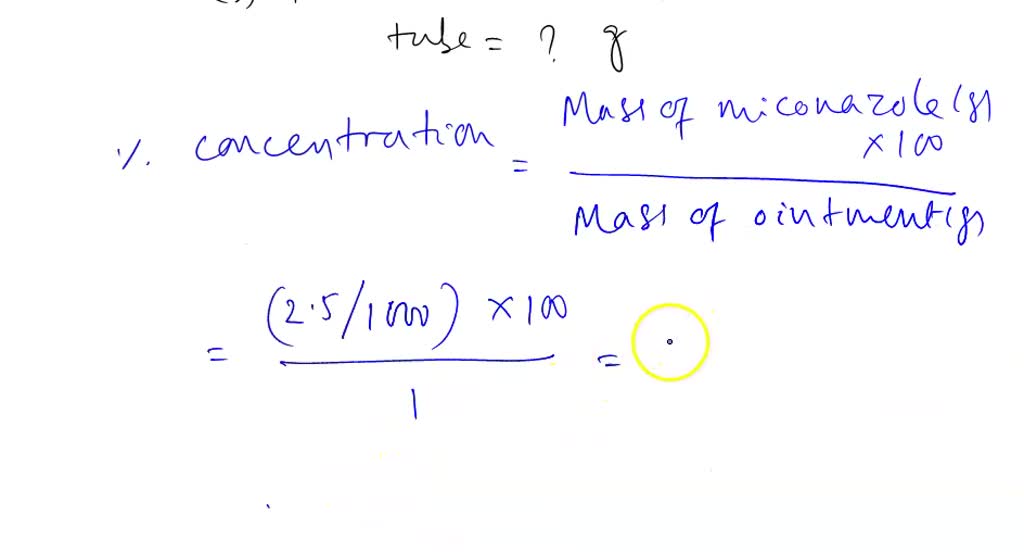 tube = ? g
% concentration = Mass of miconazole (g) × 100
Mass of ointment (g)
= (2.5/1000) × 100 =
1